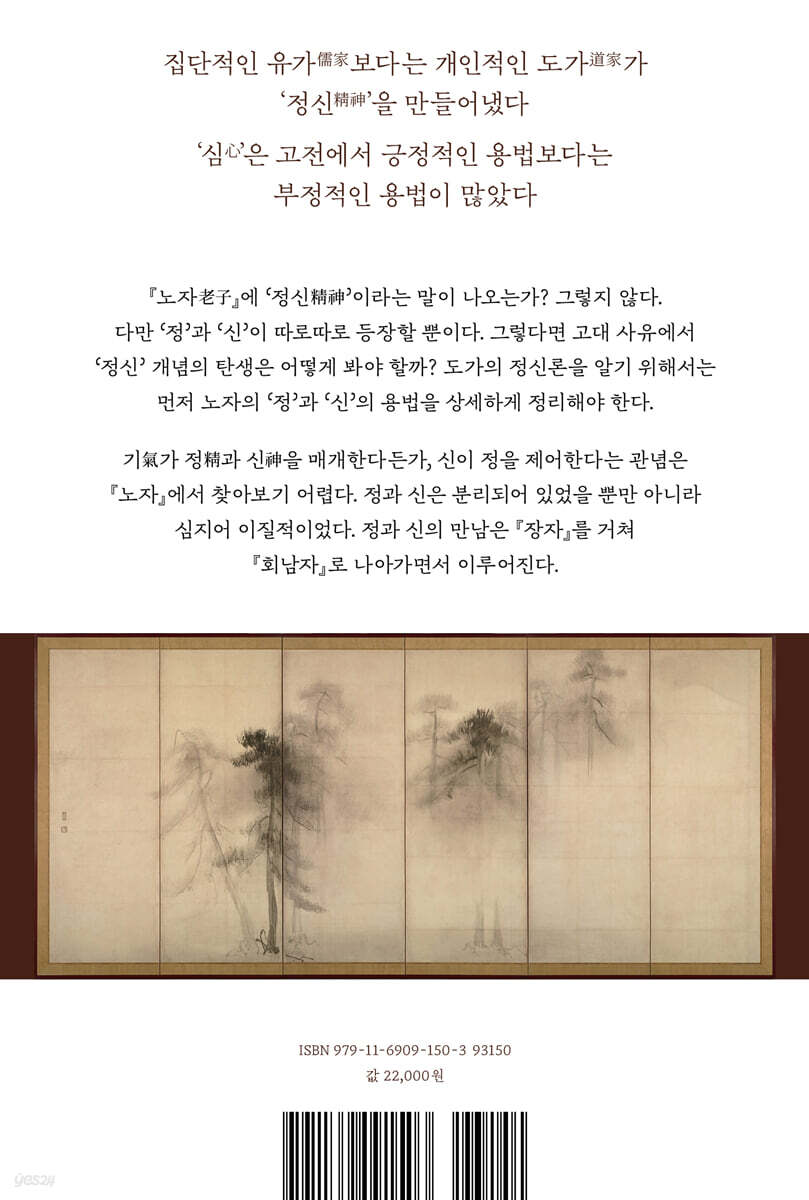 집단적인 유가儒家보다는 개인적인 도가道家가
‘정신精神’을 만들어냈다
‘심心’은 고전에서 긍정적인 용법보다는
부정적인 용법이 많았다
『노자老子』에 ‘정신精神’이라는 말이 나오는가? 그렇지 않다.
다만 ‘정’과 ‘신’이 따로따로 등장할 뿐이다. 그렇다면 고대 사유에서
‘정신’ 개념의 탄생은 어떻게 봐야 할까? 도가의 정신론을 알기 위해서는
먼저 노자의 ‘정’과 ‘신’의 용법을 상세하게 정리해야 한다.
기氣가 정精과 신神을 매개한다든가, 신이 정을 제어한다는 관념은
『노자』에서 찾아보기 어렵다. 정과 신은 분리되어 있었을 뿐만 아니라
심지어 이질적이었다. 정과 신의 만남은 『장자』를 거쳐
『회남자』로 나아가면서 이루어진다.
ISBN 979-11-6909-150-3 93150
값 22,000원
yes24